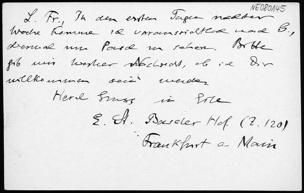 NE080A45
L. Fr., In den ersten Tagen nächster
Woche komme ich voraussichtlich nach B.,
um Paul zu sehen. Bitte
gib mir vorher Nachricht, ob ich Dir
willkommen sein werde.
Herzl. Gruss in Eile
E. A. Baseler Hof (Z. 120)
Frankfurt a Main